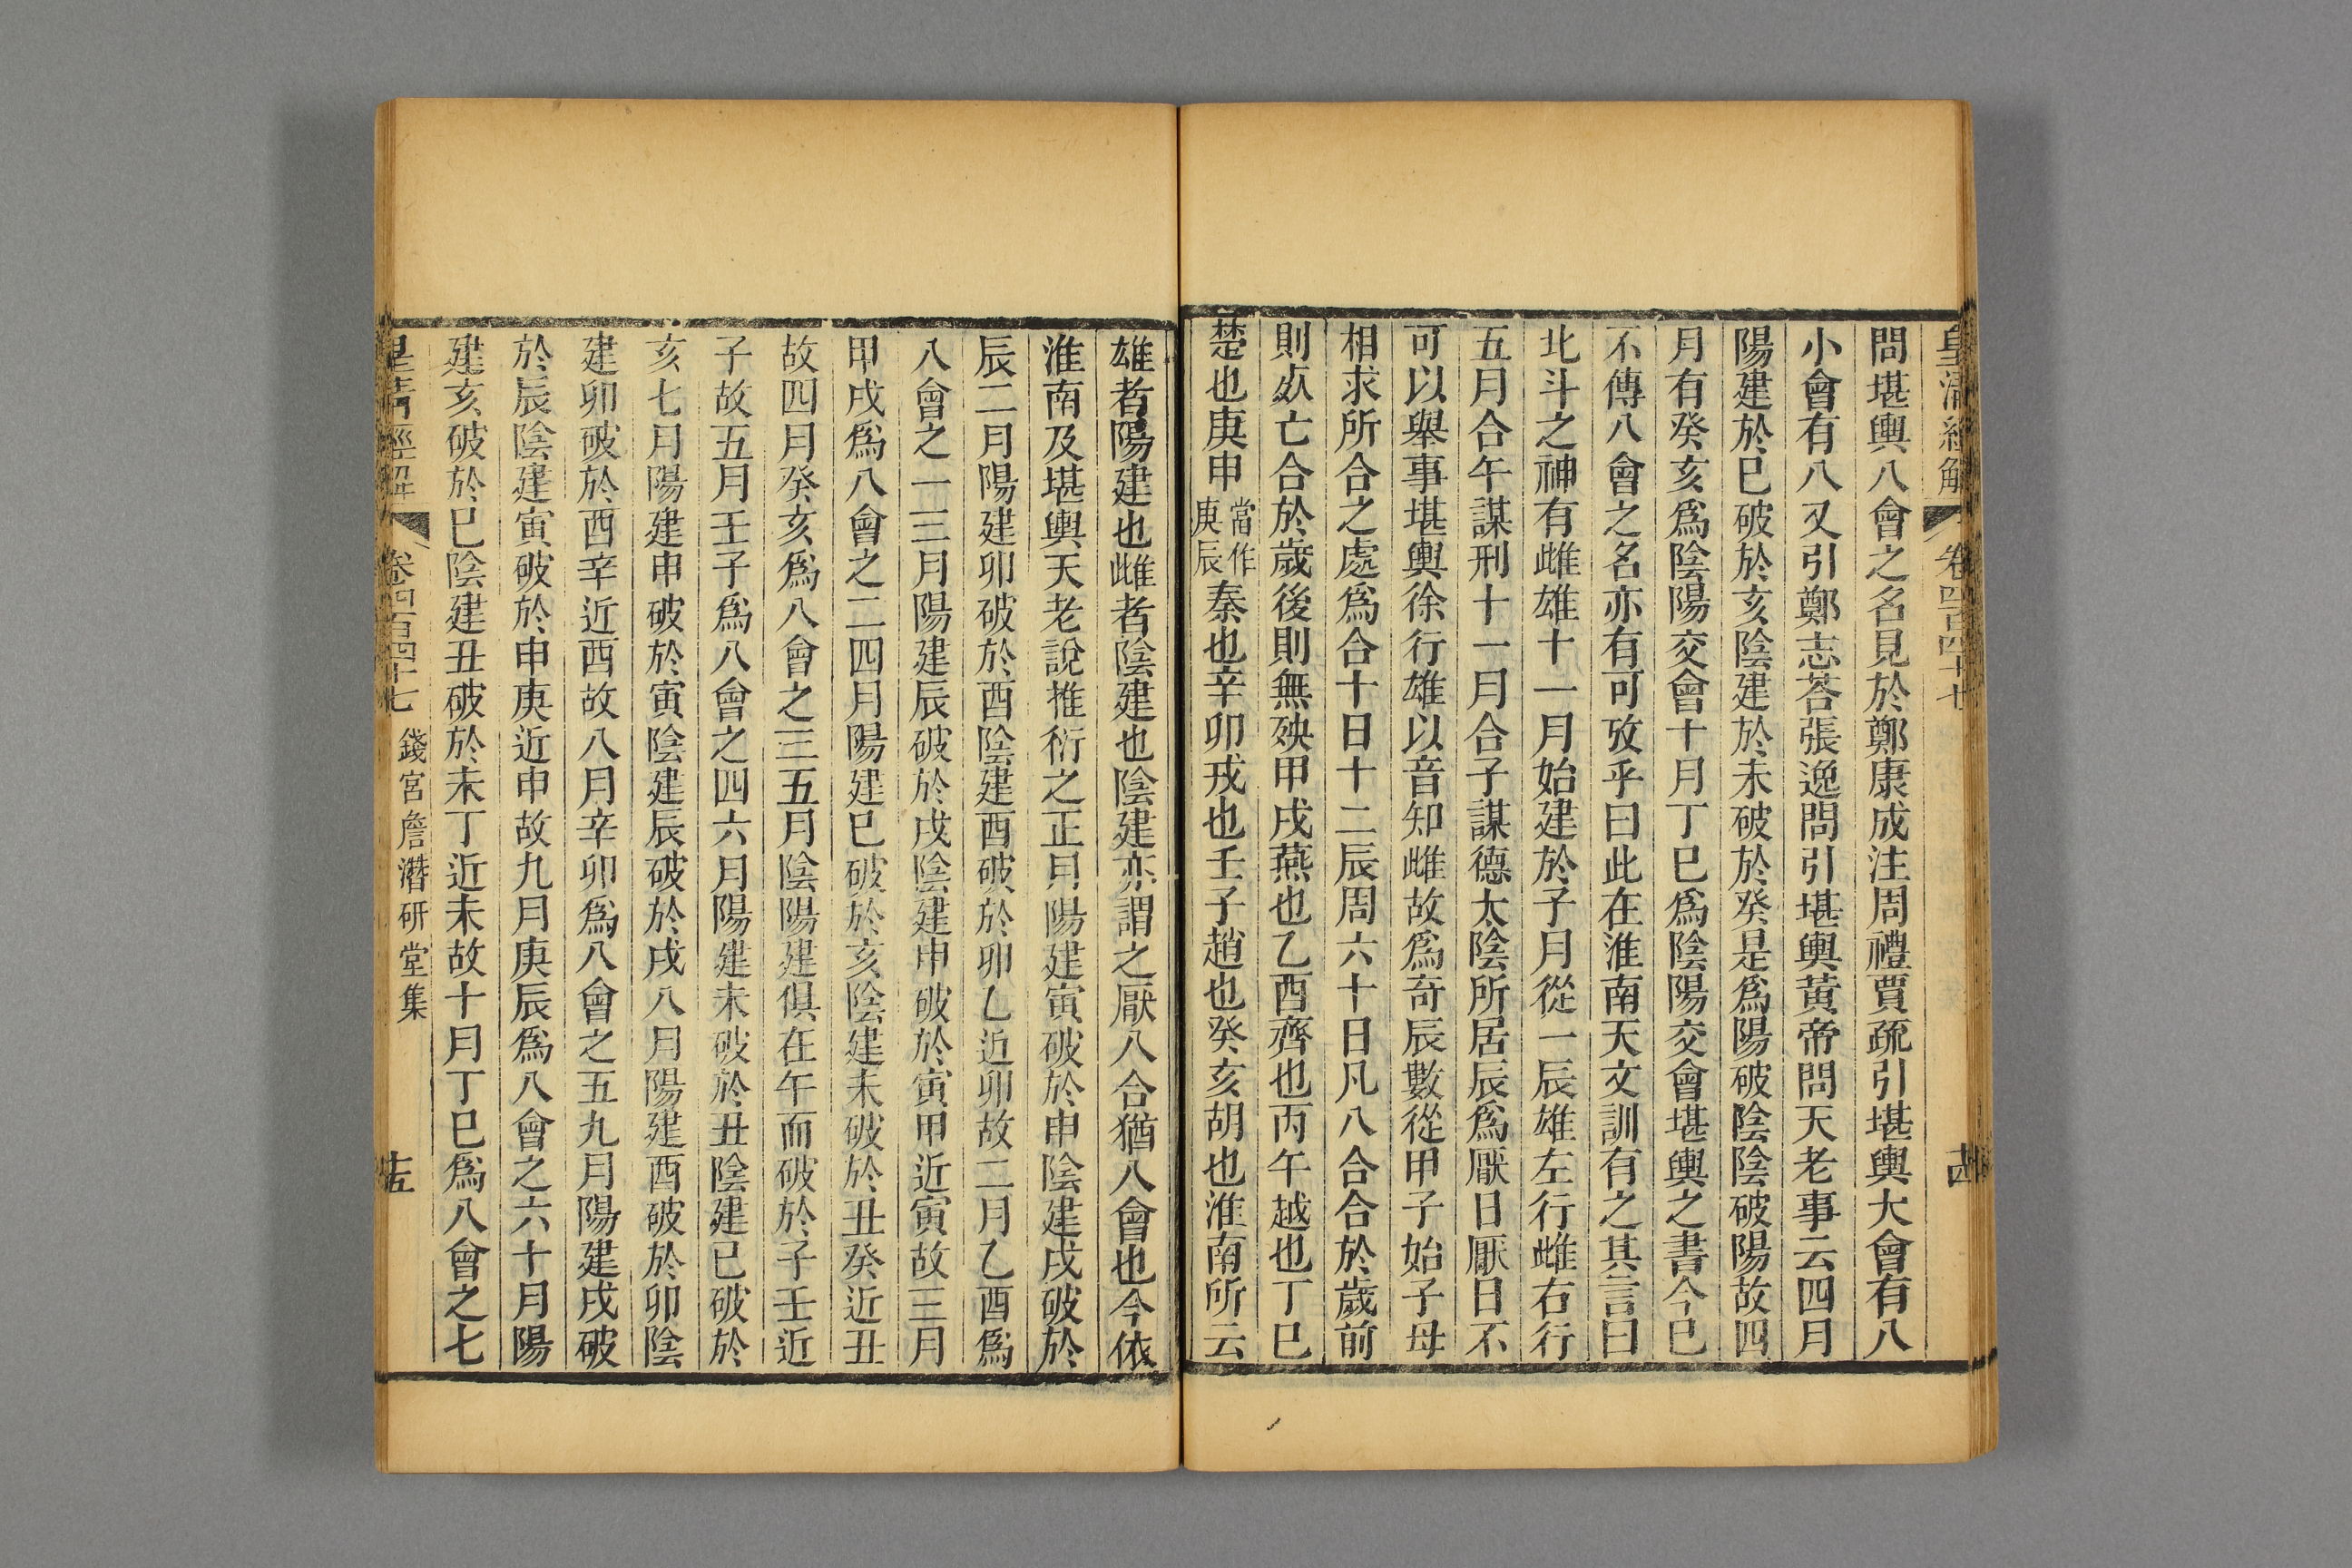 皇清經解 卷四百四十七 十四
問堪輿八會之名見於鄭康成注周禮賈疏引堪輿大會有八
小會有八又引鄭志荅張逸問引堪輿黃帝問天老事云四月
陽建於巳破於亥陰建於未破於癸是爲陽破陰陰破陽故四
月有癸亥爲陰陽交會十月丁巳爲陰陽交會堪輿之書今已
不傳八會之名亦有可攷乎曰此在淮南天文訓有之其言曰
北斗之神有雌雄十一月始建於子月從一辰雄左行雌右行
五月合午謀刑十一月合子謀德太陰所居辰爲厭日厭日不
可以舉事堪輿徐行雄以音知雌故爲奇辰數從甲子始子母
相求所合之處爲合十日十二辰周六十日凡八合合於歲前
則㱙亡合於歲後則無殃甲戌燕也乙酉齊也丙午越也丁巳
楚也庚申當作庚辰秦也辛卯戎也壬子趙也癸亥胡也淮南所云
雄者陽建也雌者陰建也陰建亦謂之厭八合猶八會也今依
淮南及堪輿天老說推衍之正月陽建寅破於申陰建戌破於
辰二月陽建卯破於酉陰建酉破於卯乙近卯故二月乙酉爲
八會之一三月陽建辰破於戌陰建申破於寅甲近寅故三月
甲戌爲八會之二四月陽建巳破於亥陰建未破於丑癸近丑
故四月癸亥爲八會之三五月陰陽建俱在午而破於子壬近
子故五月壬子爲八會之四六月陽建未破於丑陰建巳破於
亥七月陽建申破於寅陰建辰破於戌八月陽建酉破於卯陰
建卯破於酉辛近酉故八月辛卯爲八會之五九月陽建戌破
於辰陰建寅破於申庚近申故九月庚辰爲八會之六十月陽
建亥破於巳陰建丑破於未丁近未故十月丁巳爲八會之七
皇清經解 卷四百四十七 錢宮詹潛研堂集 十五